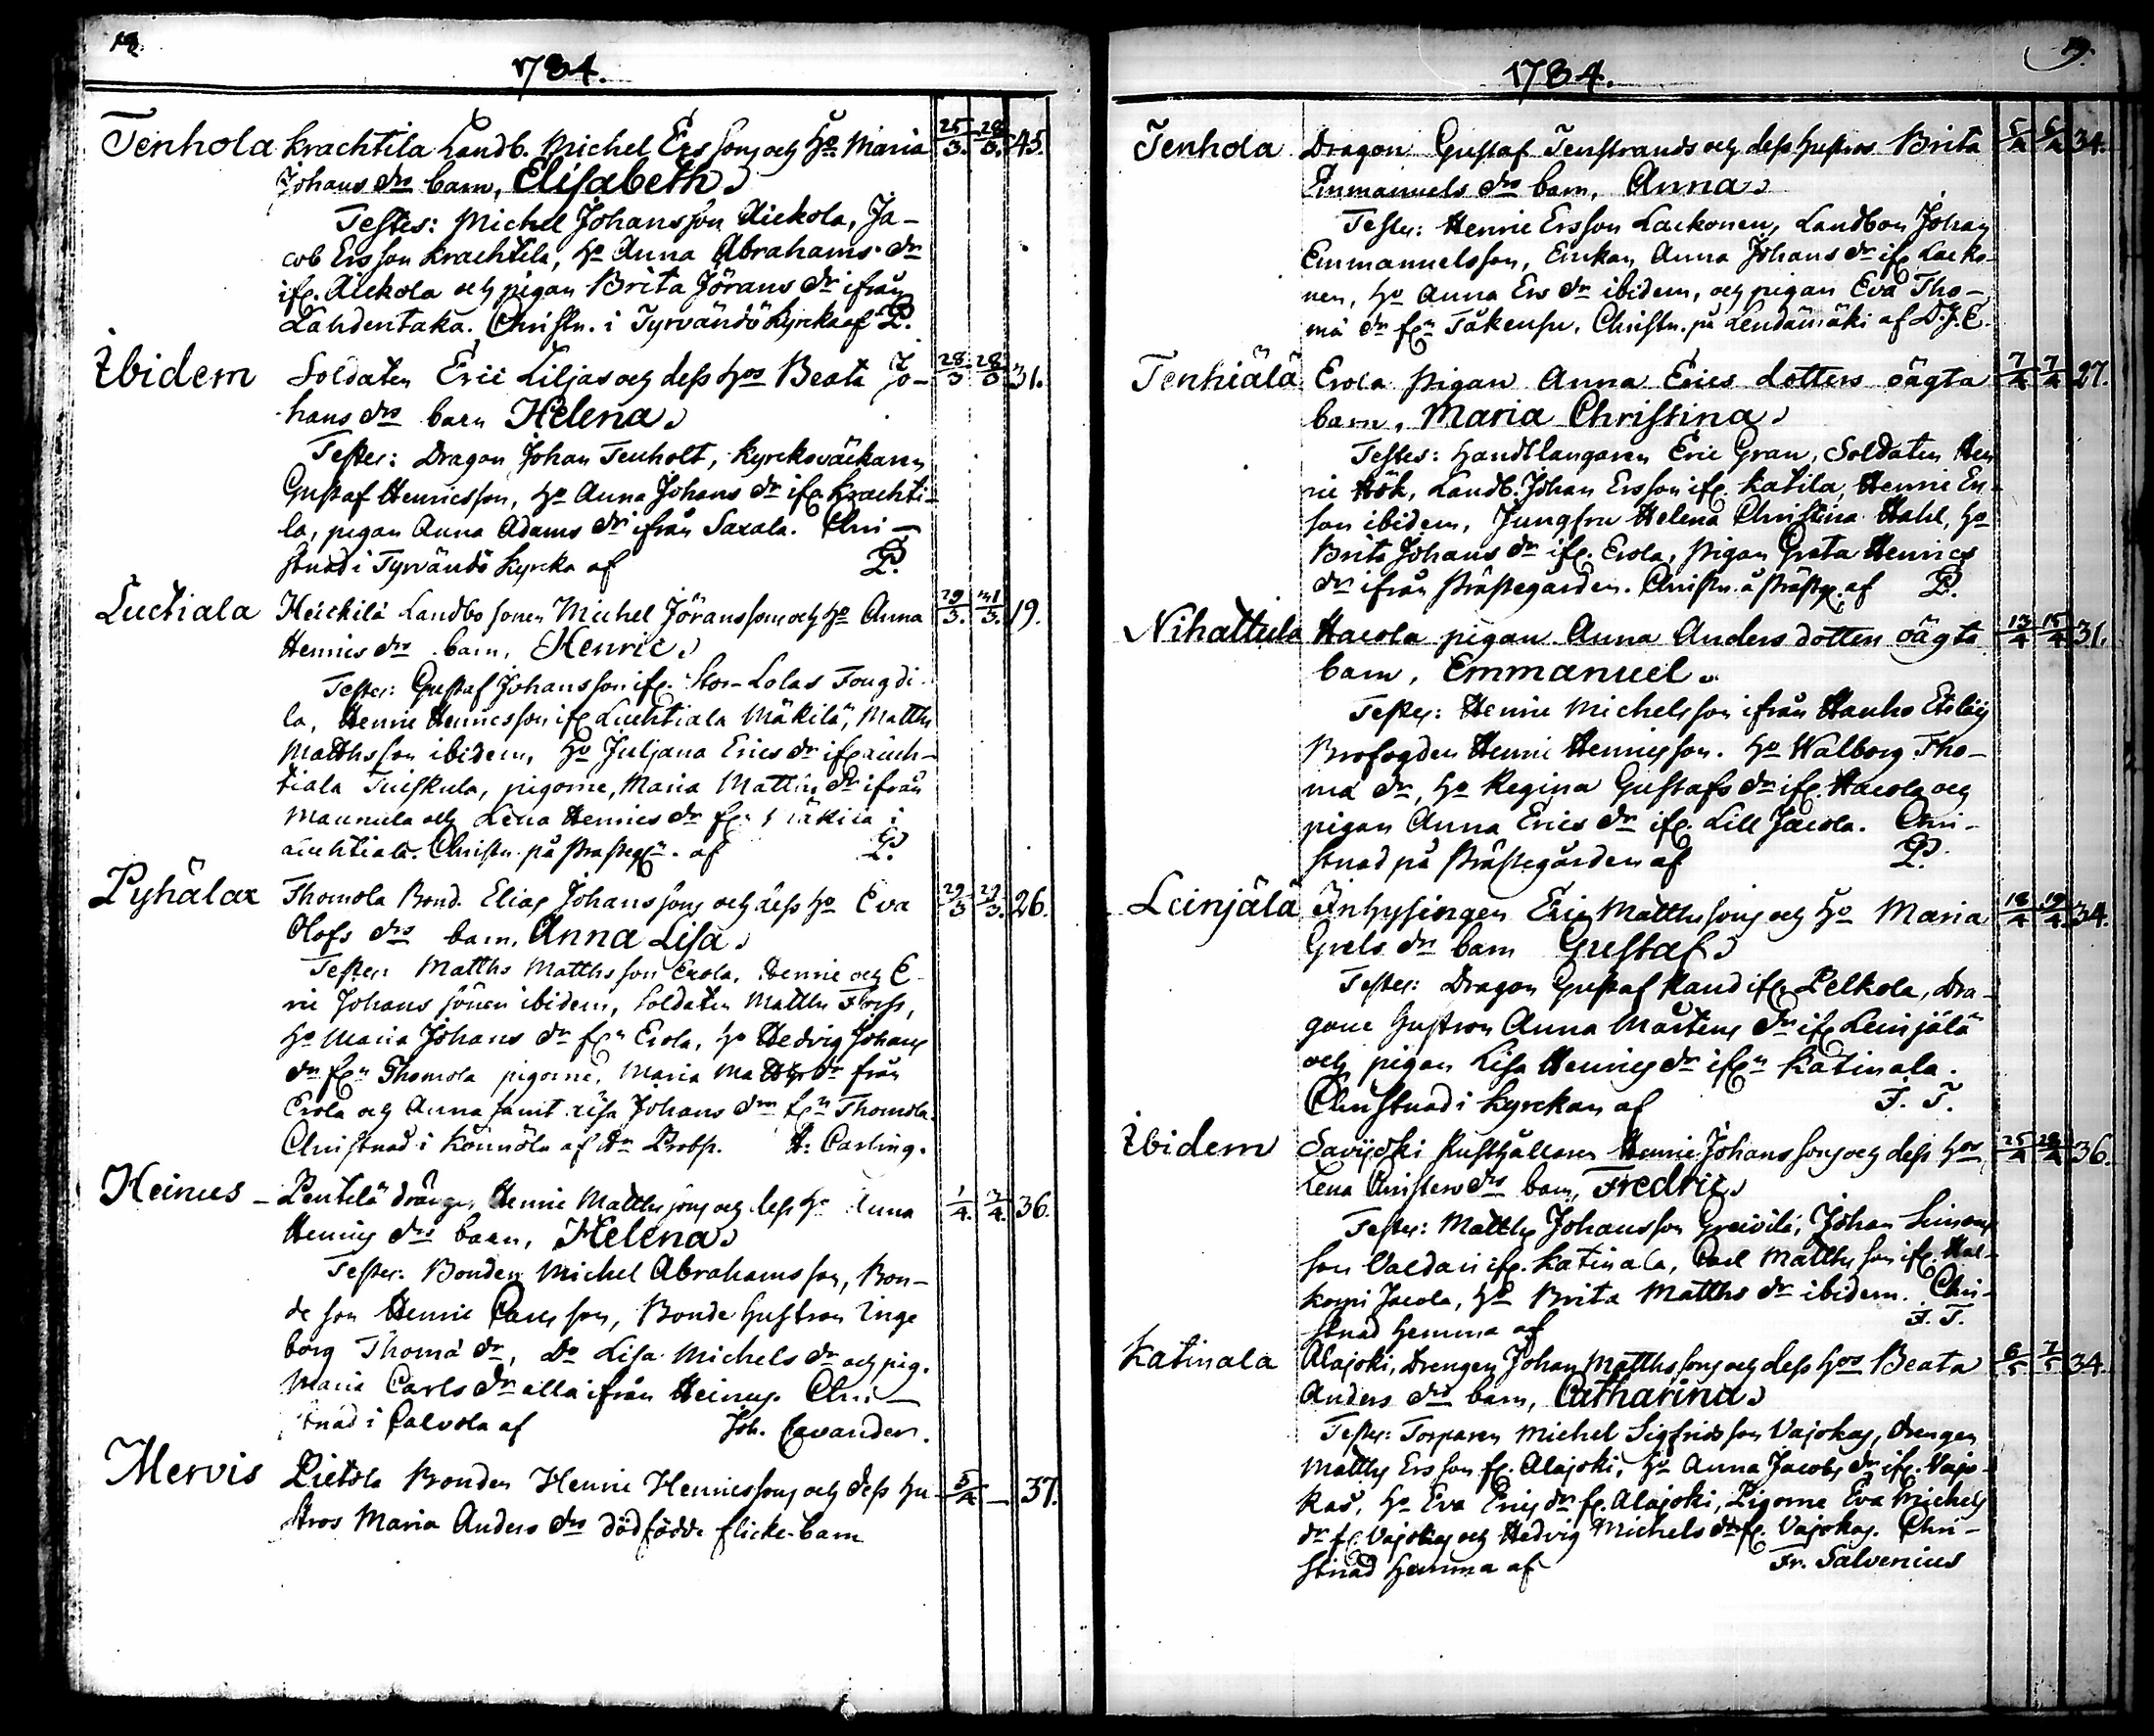 18.
1784.
Tenhola Krachtila Landb. Michel Ers sons och Ho Maria 25/3. 28/3. 45.
Johans drs barn, Elisabeth.
Testes: Michel Johansson Aickola, Ja-
cob Ersson Krachtila, Ho Anna Abrahams dr
ifr. Aickola och pigan Brita Jörans dr ifrån
Lahdentaka. Christn. i Tyrvändö Kyrcka af P.
Ibidem Soldaten Eric Liljas och dess Hos Beata Jo- 28/3 28/3 31.
hans drs barn Helena.
Testes: Dragon Johan Tenholt, Kyrckoväckaren
Gustaf Henricsson, Ho Anna Johans dr ifr. Krachti-
la, pigan Anna Adams dr ifrån Saxala. Chri-
stnad i Tyrvändö Kyrcka af P.
Luctiala Heickilä Landbo sonen Michel Jöranssons och Ho Anna 29/3. 31/3. 19.
Henrics drs barn, Henric.
Testes: Gustaf Johansson ifr. Stor-Lolas Fougdi-
la, Henric Henricsson ifr Luchtiala Mäkilä, Matths
Matthsson ibidem, Ho Juljana Erics dr ifr Luch-
tiala Tuiskula, pigorne, Maria Matths dr ifrån
Maunula och Lena Henrics dr frn Mäkilä i
Luchtiala. Christn. på Prästegn. af P.
Pyhälax Thomola Bond. Elias Johanssons och dess Ho Eva 29/3 29/3. 26.
Olofs drs barn, Anna Lisa.
Testes: Matths Matthsson Erola, Henric och E-
ric Johans söner ibidem, Soldaten Matths Florss,
Ho Maria Johans dr frn Erola, Ho Hedvig Johans
dr frn Thomola pigorne, Maria Matths dr från
Erola och Anna samt Lisa Johans drr frn Thomola.
Christnad i Könnölä af Hr Probst. H: Carling.
Heinus - Pentilä dräng, Henric Matthssons och dess Ho Anna 1/4. 2/4. 36.
Henrics drs barn, Helena.
Testes: Bonden Michel Abrahamsson, Bon-
de son Henric Carlsson, Bonde Hustron Inge
borg Thomä dr, Do Lisa Michels dr och pig.
Maria Carls dr alla ifrån Heinus. Chri-
stnad i Calvola af Joh. Cavander.
Mervis Pietola Bonden Henric Henricssons och dess Hu- 5/4 — 37.
stros Maria Anders drs dödfödde flicke-barn
19.
1784.
Tenhola Dragon Gustaf Tenstrands och dess Hustros Brita 5/4 5/4 34.
Emmanuels drs barn, Anna.
Testes: Henric Ersson Lackonen, Landbon Johan
Emmanuelsson, Enckan Anna Johans dr ifr Lacko-
nen, Ho Anna Ers dr ibidem, och pigan Eva Tho-
mä dr frn Täkensu. Christn. på Lendämäki af D.J.E.
Tenhiälä Erola Pigan Anna Erics dotters oägta 7/4 7/4 27.
barn, Maria Christina.
Testes: Handtlangaren Eric Gran, Soldaten Hen
ric Hök, Landb. Johan Ersson ifr. Katila, Henric Ers
son ibidem, Jungfru Helena Christina Hahl, Ho
Brita Johans dr ifr. Erola, pigan Greta Henrics
dr ifrån Prästegården. Christn. å Prästg. af P.
Nihattula Hacola pigan Anna Anders dotters oägta 13/4 15/4 31.
barn, Emmanuel.
Testes: Henric Michelsson ifrån Hauho Etsby
Brofogden Henric Henricsson. Ho Walborg Tho-
mä dr, Ho Regina Gustafs dr ifr. Hacola och
pigan Anna Erics dr ifr. Lill Jacola. Chri-
stnad på Prästegården af P.
Leinjälä Inhysingen Eric Matthssons och Ho Maria 18/4 19/4 34.
Grels drs barn Gustaf.
Testes: Dragon Gustaf Rand ifr Pelkola, Dra-
gone Hustron Anna Mårtens dr ifr Leinjälä
och pigan Lisa Henrics dr ifrn Katinala.
Christnad i Kyrckan af F. T.
Ibidem Savijocki Rusthållaren Henric Johanssons och dess Hos 25/4 28/4 36.
Lena Christers drs barn, Fredric.
Testes: Matths Johansson Greivilä, Johan Simons
son Valdari ifr. Katinala, Carl Matthsson ifr. Hal-
korpi Jacola, Ho Brita Matths dr ibidem. Chri-
stnad hemma af F. T.
Katinala Alajoki, Drengen Johan Matthssons och dess Hos Beata 6/5 7/5 34.
Anders drs barn, Catharina.
Testes: Torparen Michel Sigfridsson Vajokas, Drengen
Matths Ersson fr. Alajoki, Ho Anna Jacobs dr ifr. Vajo-
kas, Ho Eva Erics dr fr. Alajoki, Pigorne Eva Michels
dr fr. Vajokas och Hedvig Michels dr fr. Vajokas. Chri-
stnad hemma af Fr. Salvenius